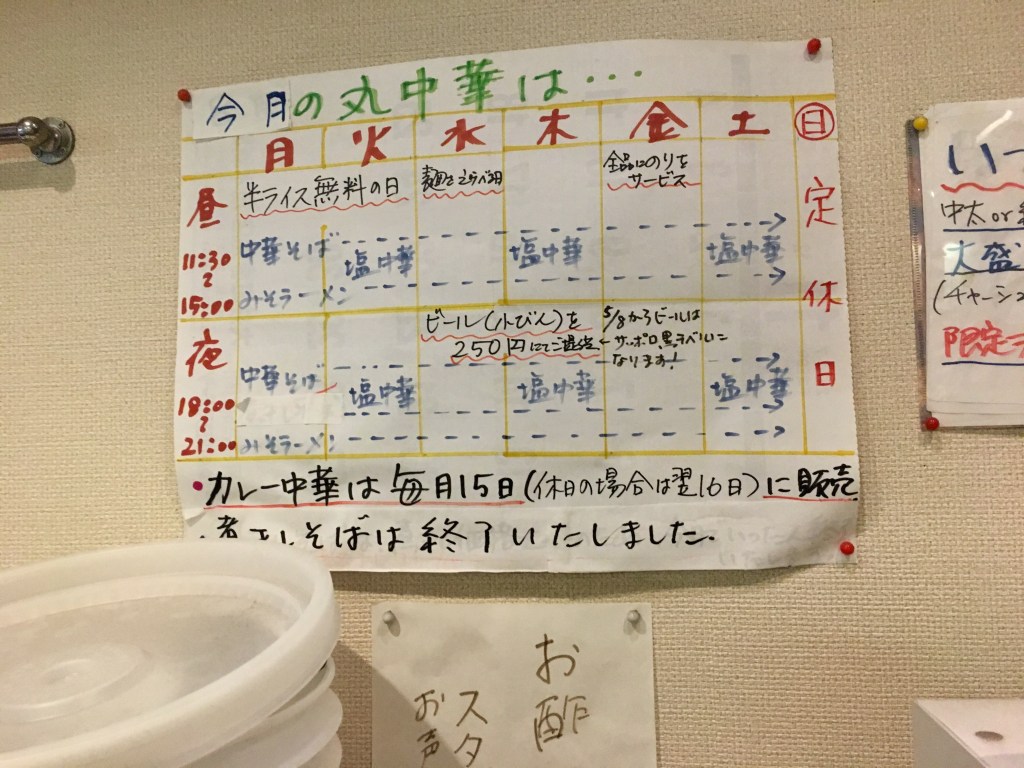 今月の丸中華は・・・
月 火 水 木 金 土 日
昼
11:30
〜
15:00
半ライス無料の日
麺をえらべる日
全品にのりを
サービス
中華そば
塩中華
塩中華
塩中華
みそラーメン
定休日
夜
18:00
〜
21:00
ビール(小びん)を
250円にてご提供
5/8からビールは
サッポロ黒ラベルに
なります!
中華そば
塩中華
塩中華
塩中華
みそラーメン
・カレー中華は毎月15日(休日の場合は翌16日)に販売
そばは終了いたしました.
いつ
中太or
大盛
(チャーシュ
限定ラ
お酢
スタ
お声